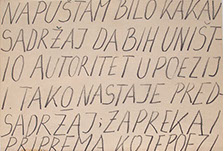 NAPUSTAM BILO KAKAV
SADRŽAJ DA BIH UNIŠT
IO AUTORITET U POEZIJ
I. TAKO NASTAJE PRED-
SADRŽAJ; ZAPREKA,
PRIPREMA KOJE POEZ